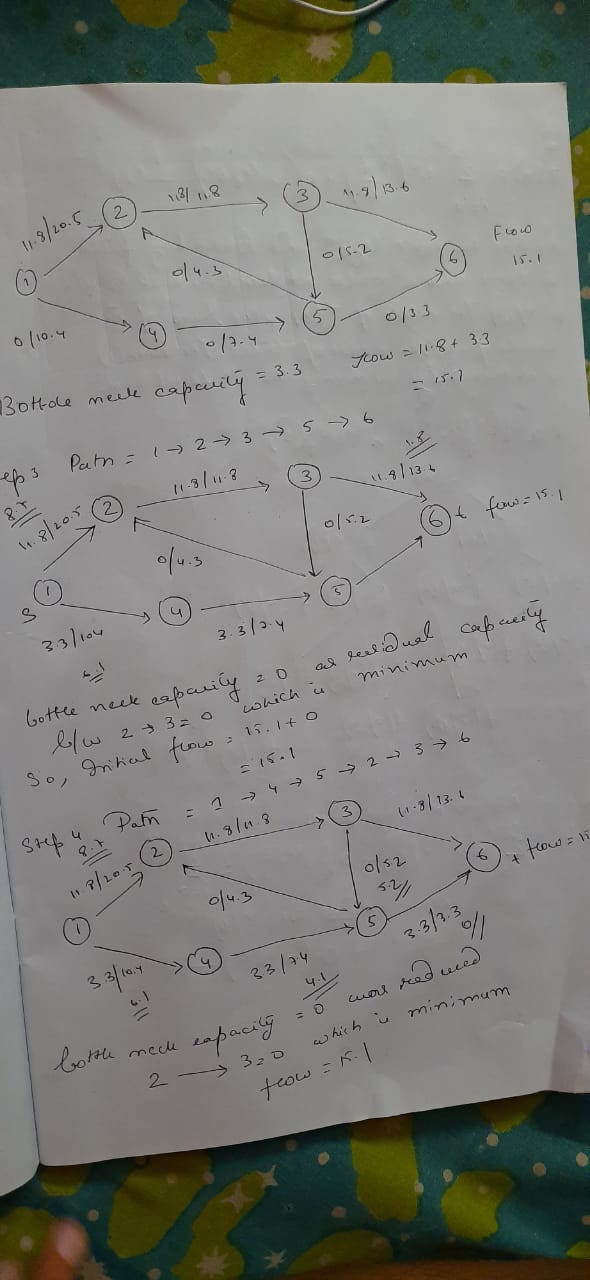 11.8/20.5 2 11.8/11.8 3 11.8/13.6
1 0/4.3 0/5.2 6 Flow
15.1
0/10.4 4 0/7.4 5 0/3.3
Bottle neck capacity = 3.3 flow = 11.8 + 3.3
= 15.1
ep 3 Path = 1 → 2 → 3 → 5 → 6
8.7 11.8/20.5 2 11.8/11.8 3 11.8/13.6 1.8
0/4.3 0/5.2 6 t flow = 15.1
S 1 4 5
3.3/10.4 3.3/7.4
bottle neck capacity = 0 as residual capacity
b/w 2 → 3 = 0 which is minimum
So, Initial flow = 15.1 + 0
= 15.1
Step 4 Path = 1 → 4 → 5 → 2 → 3 → 6
8.7 11.8/20.5 2 11.8/11.8 3 11.8/13.6
0/4.3 0/5.2 5.2 6 t flow = 15
1 4 5 3.3/3.3 0
3.3/10.4 3.3/7.4
4.1
bottle neck capacity = 0
2 → 3 = 0 which is minimum
flow = 15.1